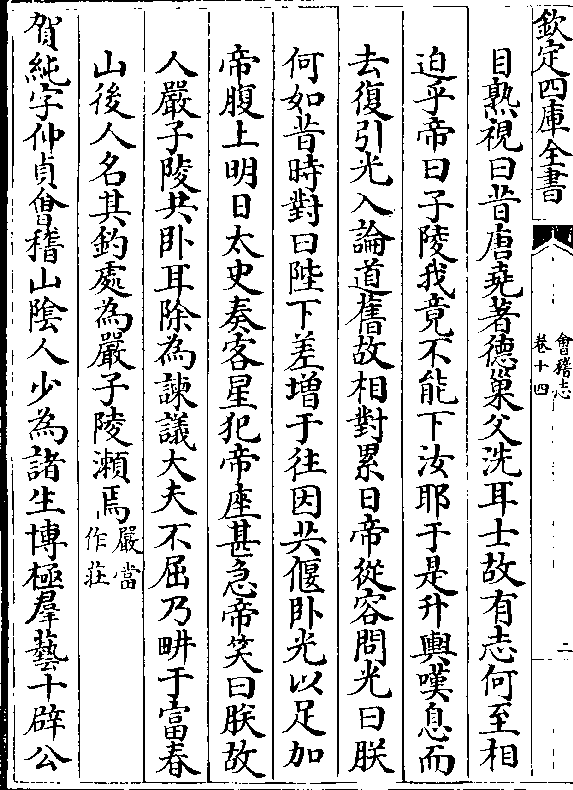 欽定四庫全書
會稽志
卷十四
二
目熟視曰昔唐堯著德巢父洗耳士故有志何至相
迫乎帝曰子陵我竟不能下汝耶于是升輿嘆息而
去復引光入論道舊故相對累日帝從容問光曰朕
何如昔時對曰陛下差增于往因共偃卧光以足加
帝腹上明日太史奏客星犯帝座甚急帝笑曰朕故
人嚴子陵共卧耳除為諫議大夫不屈乃畊于富春
山後人名其釣處為嚴子陵瀨焉嚴當作莊
賀純字仲貞會稽山陰人少為諸生博極羣藝十辟公